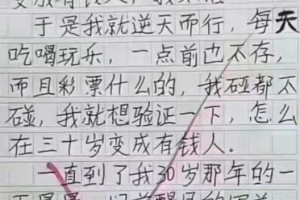 于是我就逆天而行，每天
吃喝玩乐，一点前也不存，
而且彩票什么的，我碰都不
碰，我就想验证一下，怎么
在三十岁变成有钱人.
一直到了我30岁那年的一